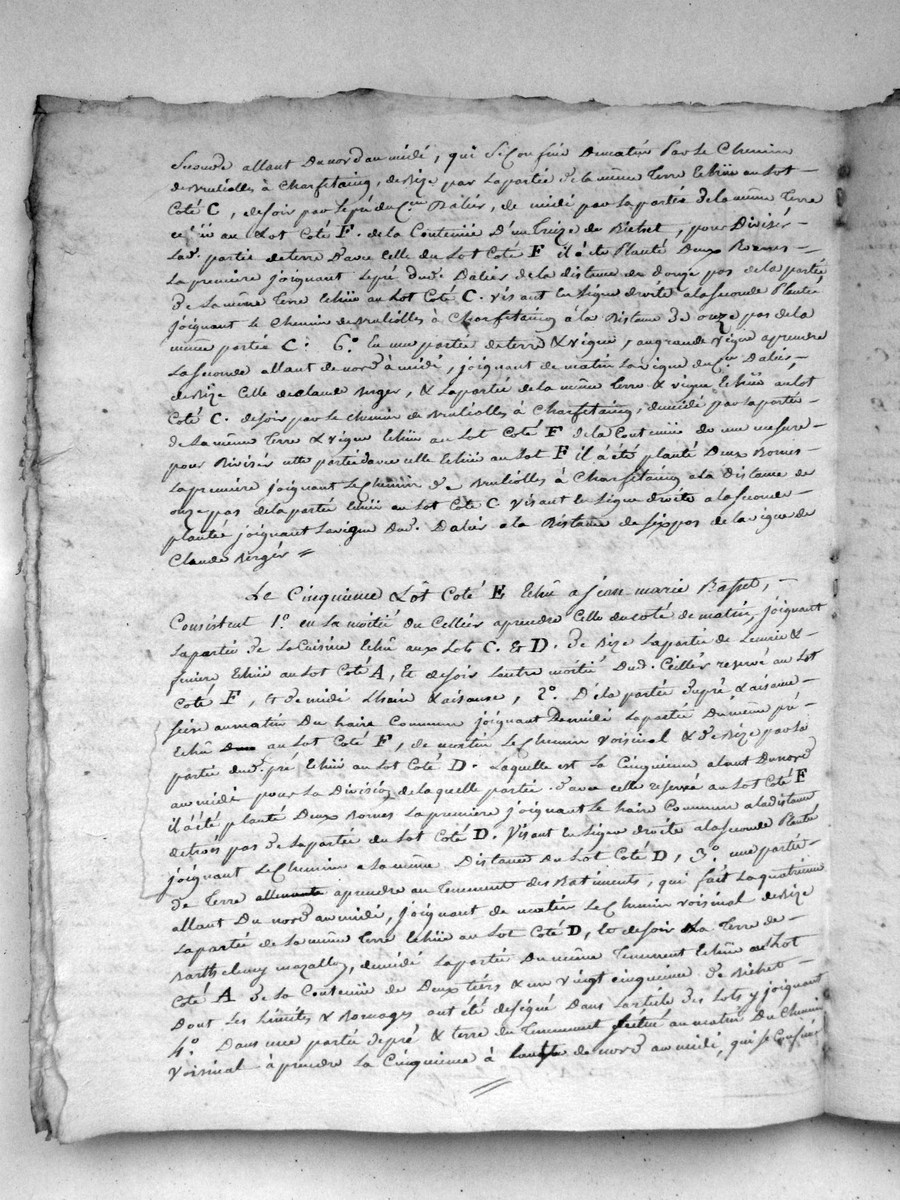 seconde allant du nord au midi, qui se Confine de matin Par le Chemin
de Bruliolles à Charfetaing, de Bize par la partie de la même Terre Echüe au Lot
Coté C, de soir par le pré du C.en Daliés, de midi par la partie de la même Terre
Echüe au Lot Coté F. de la Contenüe D'un treize de Bichet, pour Divisér
Lad. partie de terre D'avec Celle du Lot Coté F il a été Planté Deux Bornes
La premiere joignant le pré dud. Daliés de la distance de douze pas de la partie
de la même Terre Echüe au Lot Coté C. visant en Ligne droite a la seconde Plantée
joignant le Chemin de Bruliolles à Charfetaing à la Distance de onze pas de la
même partie C. 6.° En une partie de terre & vigne, au grande vigne aprendre
La seconde allant de nord à midi, joignant de matin La vigne du C.en Daliés
de Bize Celle de Claude Berger, & La partie de la même terre & vigne Echüe au Lot
Coté C. de soir par le chemin de Bruliolles à Charfetaing, de midi par la partie
de la même Terre & vigne Echüe au Lot Coté F de la Contenüe de une mesure
pour Divisér cette partie d'avec celle Echüe au Lot F il a été planté Deux Bornes
La premiere joignant Le Chemin de Bruliolles à Charfetaing a la Distance de
onze pas de la partie Echüe au Lot Coté C visant en Ligne droite a la seconde
plantée joignant La vigne dud. Daliés a la Distance de six pas de la vigne de
Claude Bergér
Le Cinquieme Lôt Coté E Echû a Jean marie Basset,
Consistent 1.° en La moitié du Celliér aprendre Celle du coté de matin, joignant
La partie de La Cuisine Echüe aux Lots C. et D. de Bize La partie de L'ecurie &
feniere Echüe au Lot Coté A, Et de soir L'autre moitié Dud. Celliér reservé au Lot
Coté F, et de midi L'haire & aisance, 2.° De la partie du pré & aisance
sise au matin Du haire Commun joignant De midi La partie Du même pré
Echüe au Lot Coté F, de matin Le Chemin Voisinal & de Bize par la
partie dud. pré Echüe au Lot Coté D. Laquelle est La Cinquieme alant Du nord
au midi pour La Division de laquelle partie d'avec celle reservée au Lot Coté F
il a été planté Deux Bornes La premiere joignant le haire Commun a la distance
de trois pas de la partie du Lot Coté D. Visant en Ligne droite a la seconde Plantée
joignant Le Chemin a la même Distance du Lot Coté D, 3.° une partie
de Terre aprendre au Tenement des Batiments, qui fait La quatrieme
allant Du nord au midi, joignant de matin Le Chemin Voisinal de Bize
La partie de La même Terre Echüe au Lot Coté D, Et de soir La Terre de
Barthelemy mazallon, de midi La partie Du même Tenement Echüe au Lot
Coté A de la Contenüe de Deux tiérs & un vingt cinquieme de Bichet
Dont Les Limites & Bornages ont été designé Dans L'article des Lots y joignant
4.° Dans une partie de pré & terre du Tenement situé au matin Du Chemin
Voisinal à prendre La Cinquieme à de nord au midi, qui se Confine